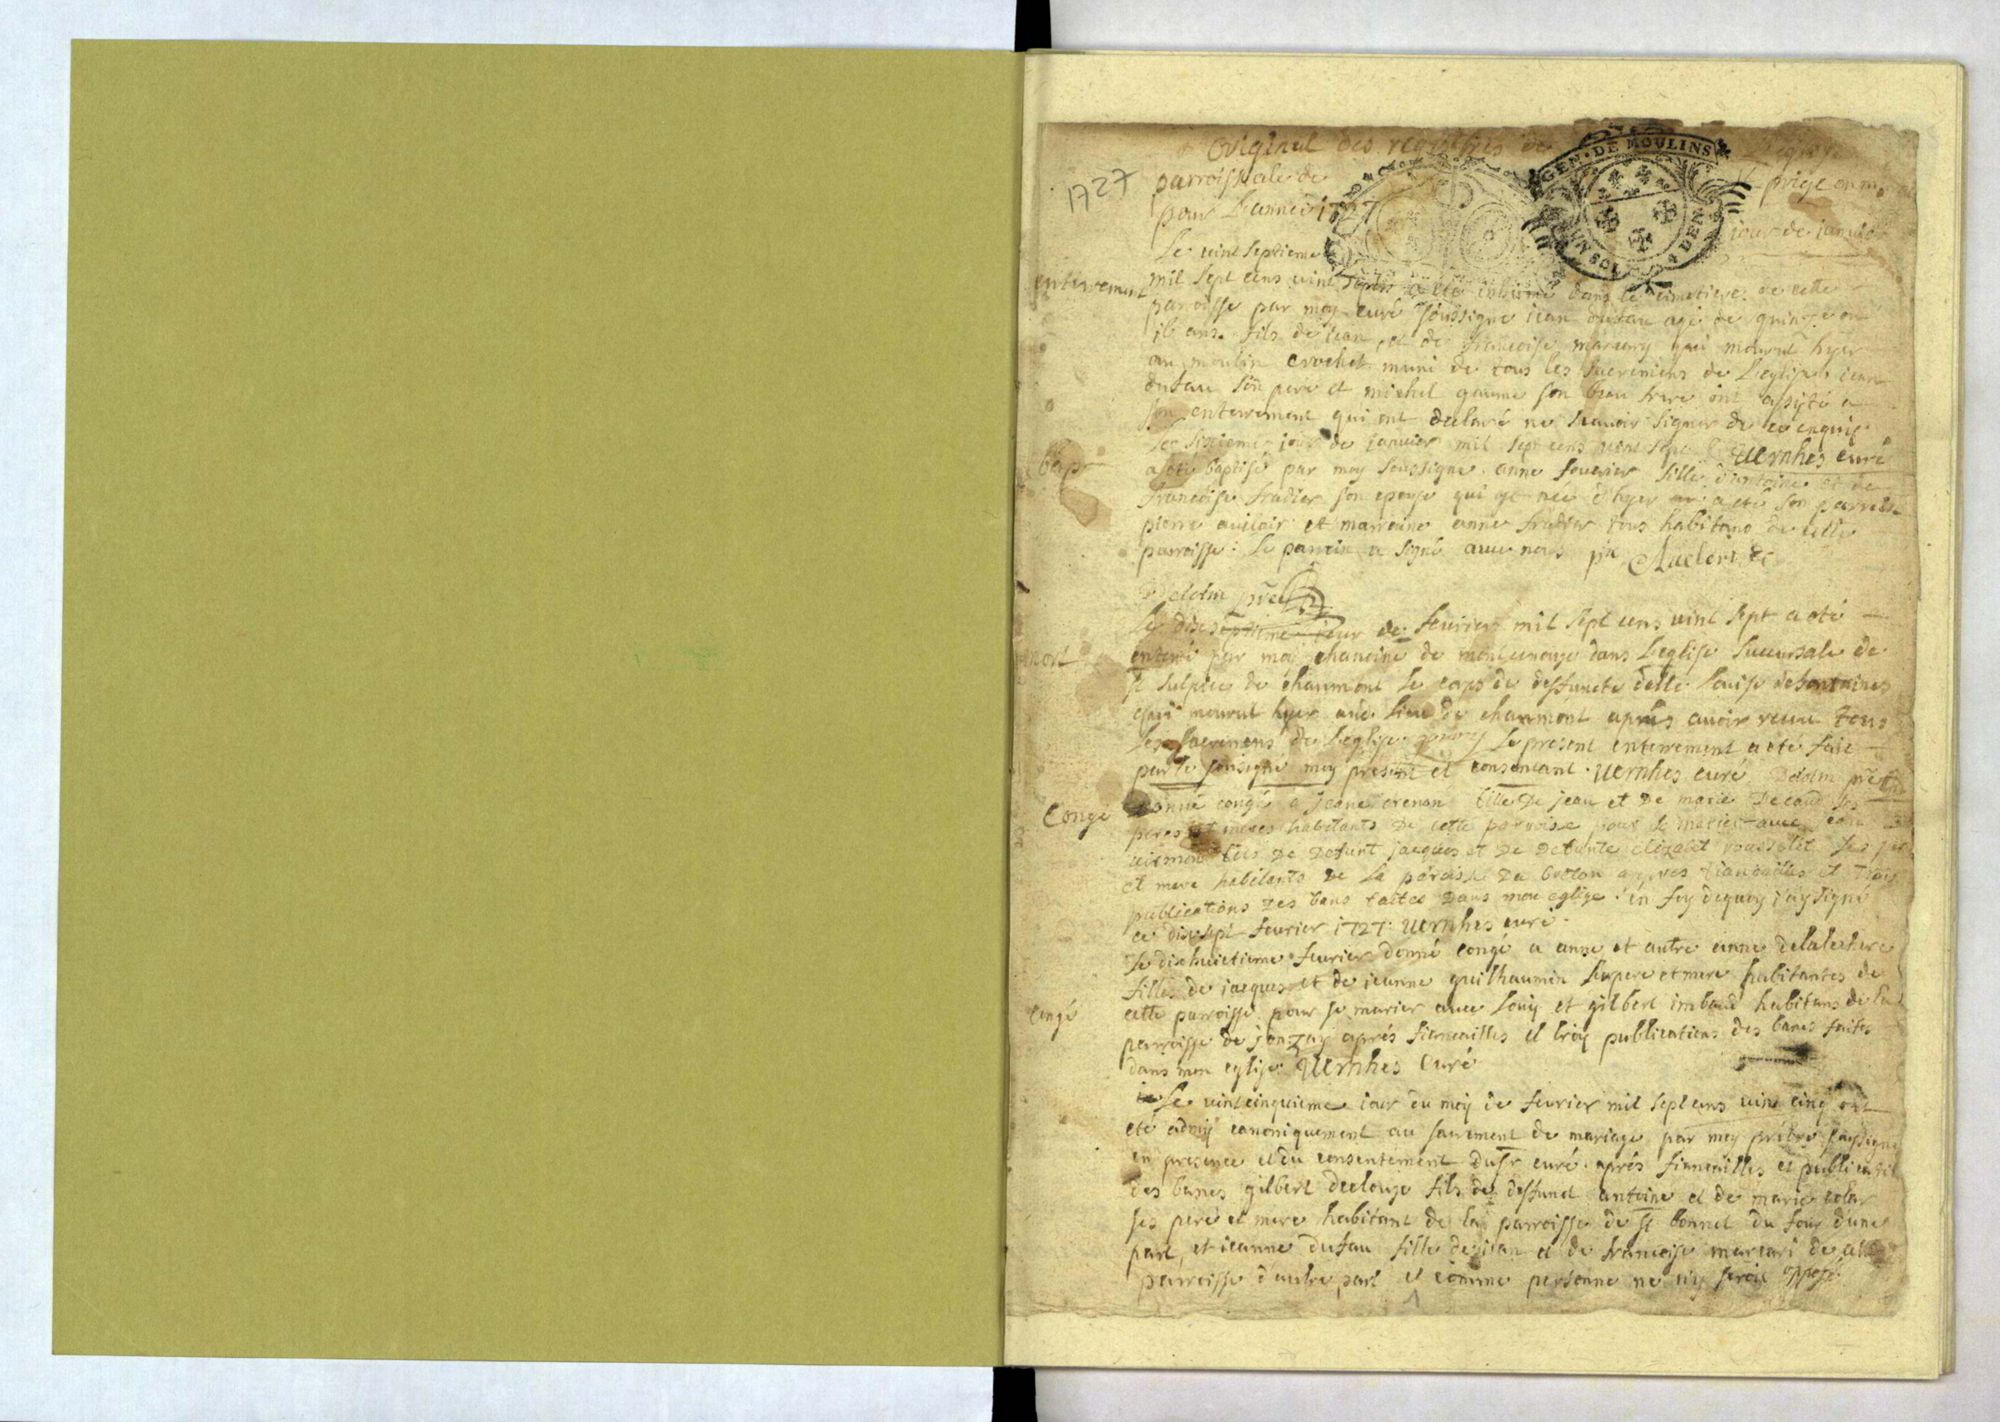 original des registres de l'eglise
1727
parroissiale de
pour l'année 1727
GEN · DE MOULINS
DEN
Le vint septieme jour de janvier
enterrement
mil sept cens vint sept a eté inhumé dans le cimetiere de cette
parroisse par moy curé soussigné jean dufau agé de quinze ou
ans. fils de jean et de francoise marcury qui mourut hyer
au moulin crochet muni de tous les sacremens de l'eglise jean
dufau son pere et michel gaume son beau frere ont assisté a
son enterrement qui ont declaré ne scavoir signer de ce enquis
Vernhes curé
bap
Le sixieme jour de janvier mil sept cens vint sept
a eté baptisé par moy soussigné anne fouvrier fille d'antoine et de
francoise fradier son epouse qui et née d'hyer a eté son parrein
pierre auclair et marraine anne fradier tous habitans de cette
parroisse. Le parrein a signé avec nous Auclert
Delolm pre
mort
Le dixseptieme jour de fevrier mil sept cens vint sept a eté
enterré par moi chanoine de montcenoux dans l'eglise succursale de
st sulpice de chaumont le corps de deffuncte delle Louise desfontaines
qui mourut hyer au lieu de chaumont aprés avoir receu tous
les sacremens de l'eglise Le present enterrement a eté fait
par le sousigné moy present et consentant. Vernhes curé Delolm pre
Congé
donné congé a jeane grenon fille de jean et de marie
peres et meres habitants de cette paroise pour se marier avec jean
fils de defunt jacques et de defunte elizabet rousselet ses pere
et mere habitants de la paroisse du breton apres fiancailles et trois
publications des bans faites dans mon eglise. en foy dequoy j'ay signé
ce dixsept fevrier 1727. Vernhes curé.
Le dixhuictieme fevrier donné congé a anne et autre anne delalechere
filles de jacques et de jeanne guilhaumin ses pere et mere habitantes de
congé
cette parroisse pour se marier avec Louis et gilbert imbaud habitans de la
parroisse de jonzay aprés fiancailles et trois publications des bancs faites
dans mon eglise. Vernhes curé
Le vintcinquieme jour du mois de fevrier mil sept cens vint cinq ont
eté admis canoniquement au sacrement de mariage par moy prêtre soussigné
en presence et du consentement du sr curé aprés fiancailles et publication
des bancs gilbert declouze fils de deffunct antoine et de marie colas
ses pere et mere habitant de la parroisse de st bonnet du four d'une
part, et jeanne dufau fille de jean et de francoise marcari de cette
parroisse d'autre part et comme personne ne s'y seroit opposé
1